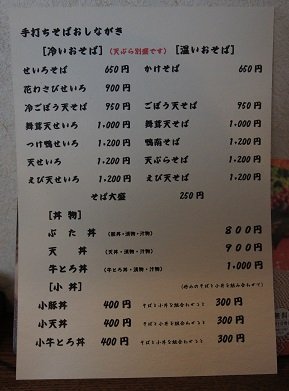 手打ちそばおしながき
[冷いおそば] (天ぷら別盛です) [温いおそば]
せいろそば 650円 かけそば 650円
花わさびせいろ 900円
冷ごぼう天そば 950円 ごぼう天そば 950円
舞茸天せいろ 1,000円 舞茸天そば 1,000円
つけ鴨せいろ 1,200円 鴨南そば 1,200円
天せいろ 1,200円 天ぷらそば 1,200円
えび天せいろ 1,200円 えび天そば 1,200円
そば大盛 250円
[丼物]
ぶた丼 (豚丼・漬物・汁物) 800円
天丼 (天丼・漬物・汁物) 900円
牛とろ丼 (牛とろ丼・漬物・汁物) 1,000円
[小丼] (好みのそばと小丼を組み合わせて)
小豚丼 400円 そばと小丼を組合わせると 300円
小天丼 400円 そばと小丼を組合わせると 300円
小牛とろ丼 400円 そばと小丼を組合わせると 300円